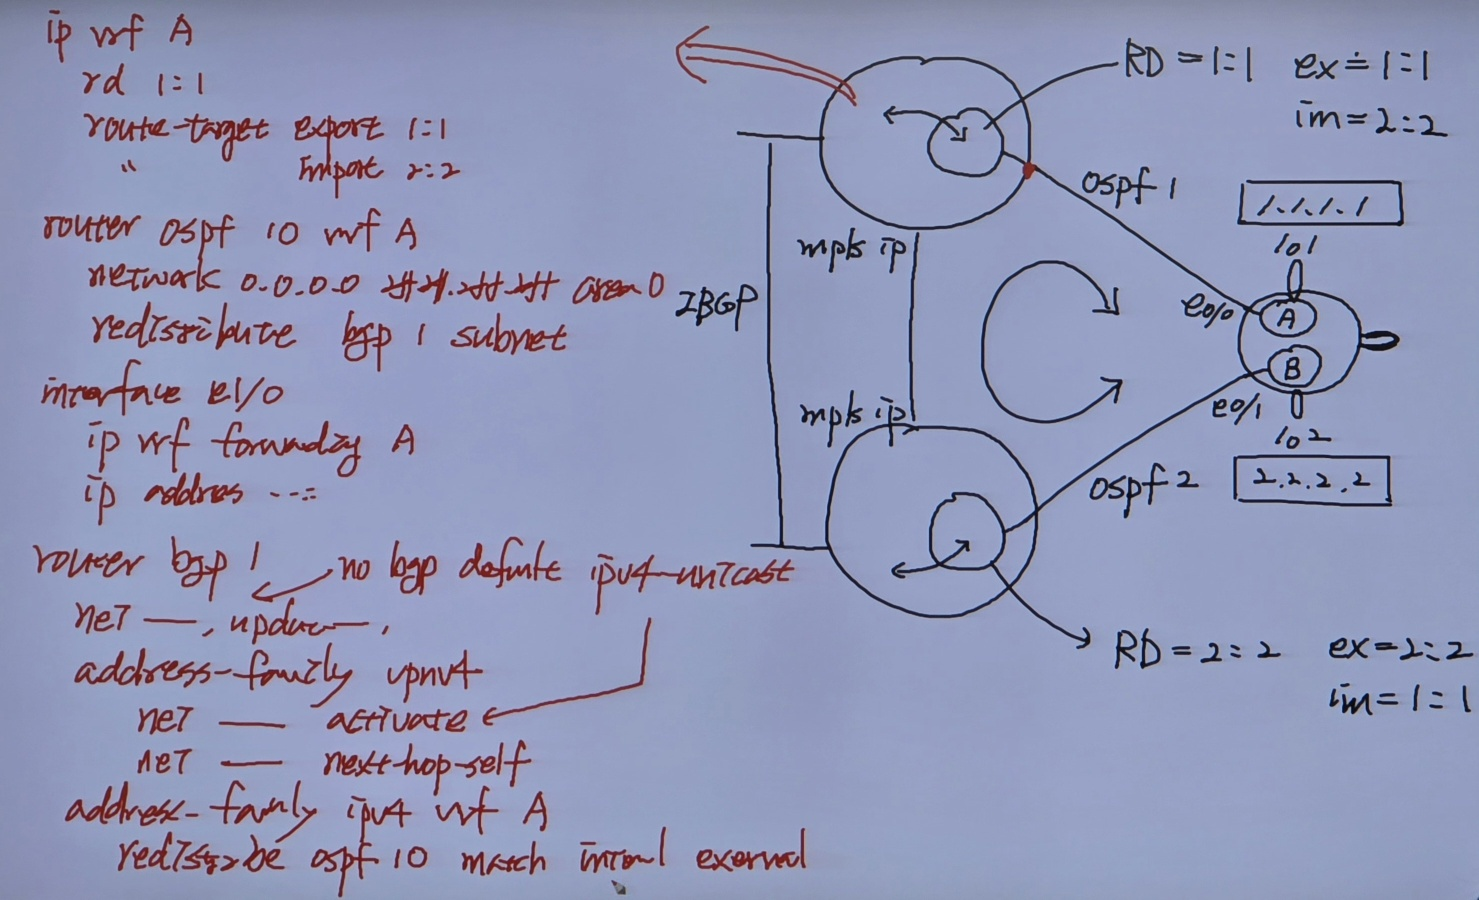 ip vrf A
rd 1:1
route-target export 1:1
" Import 2:2
router ospf 10 vrf A
network 0.0.0.0 area 0
redistribute bgp 1 subnet
interface e1/0
ip vrf forwarding A
ip addres ...
router bgp 1
no bgp default ipv4-unicast
neT —, update—,
address-family vpnv4
neT — activate
neT — next-hop-self
address-family ipv4 vrf A
redistribe ospf 10 match internal external
RD = 1:1 ex = 1:1
im = 2:2
ospf 1
1.1.1.1
lo1
mpls ip
IBGP
e0/0
A
B
e0/1
mpls ip
lo2
ospf 2
2.2.2.2
RD = 2:2 ex = 2:2
im = 1:1